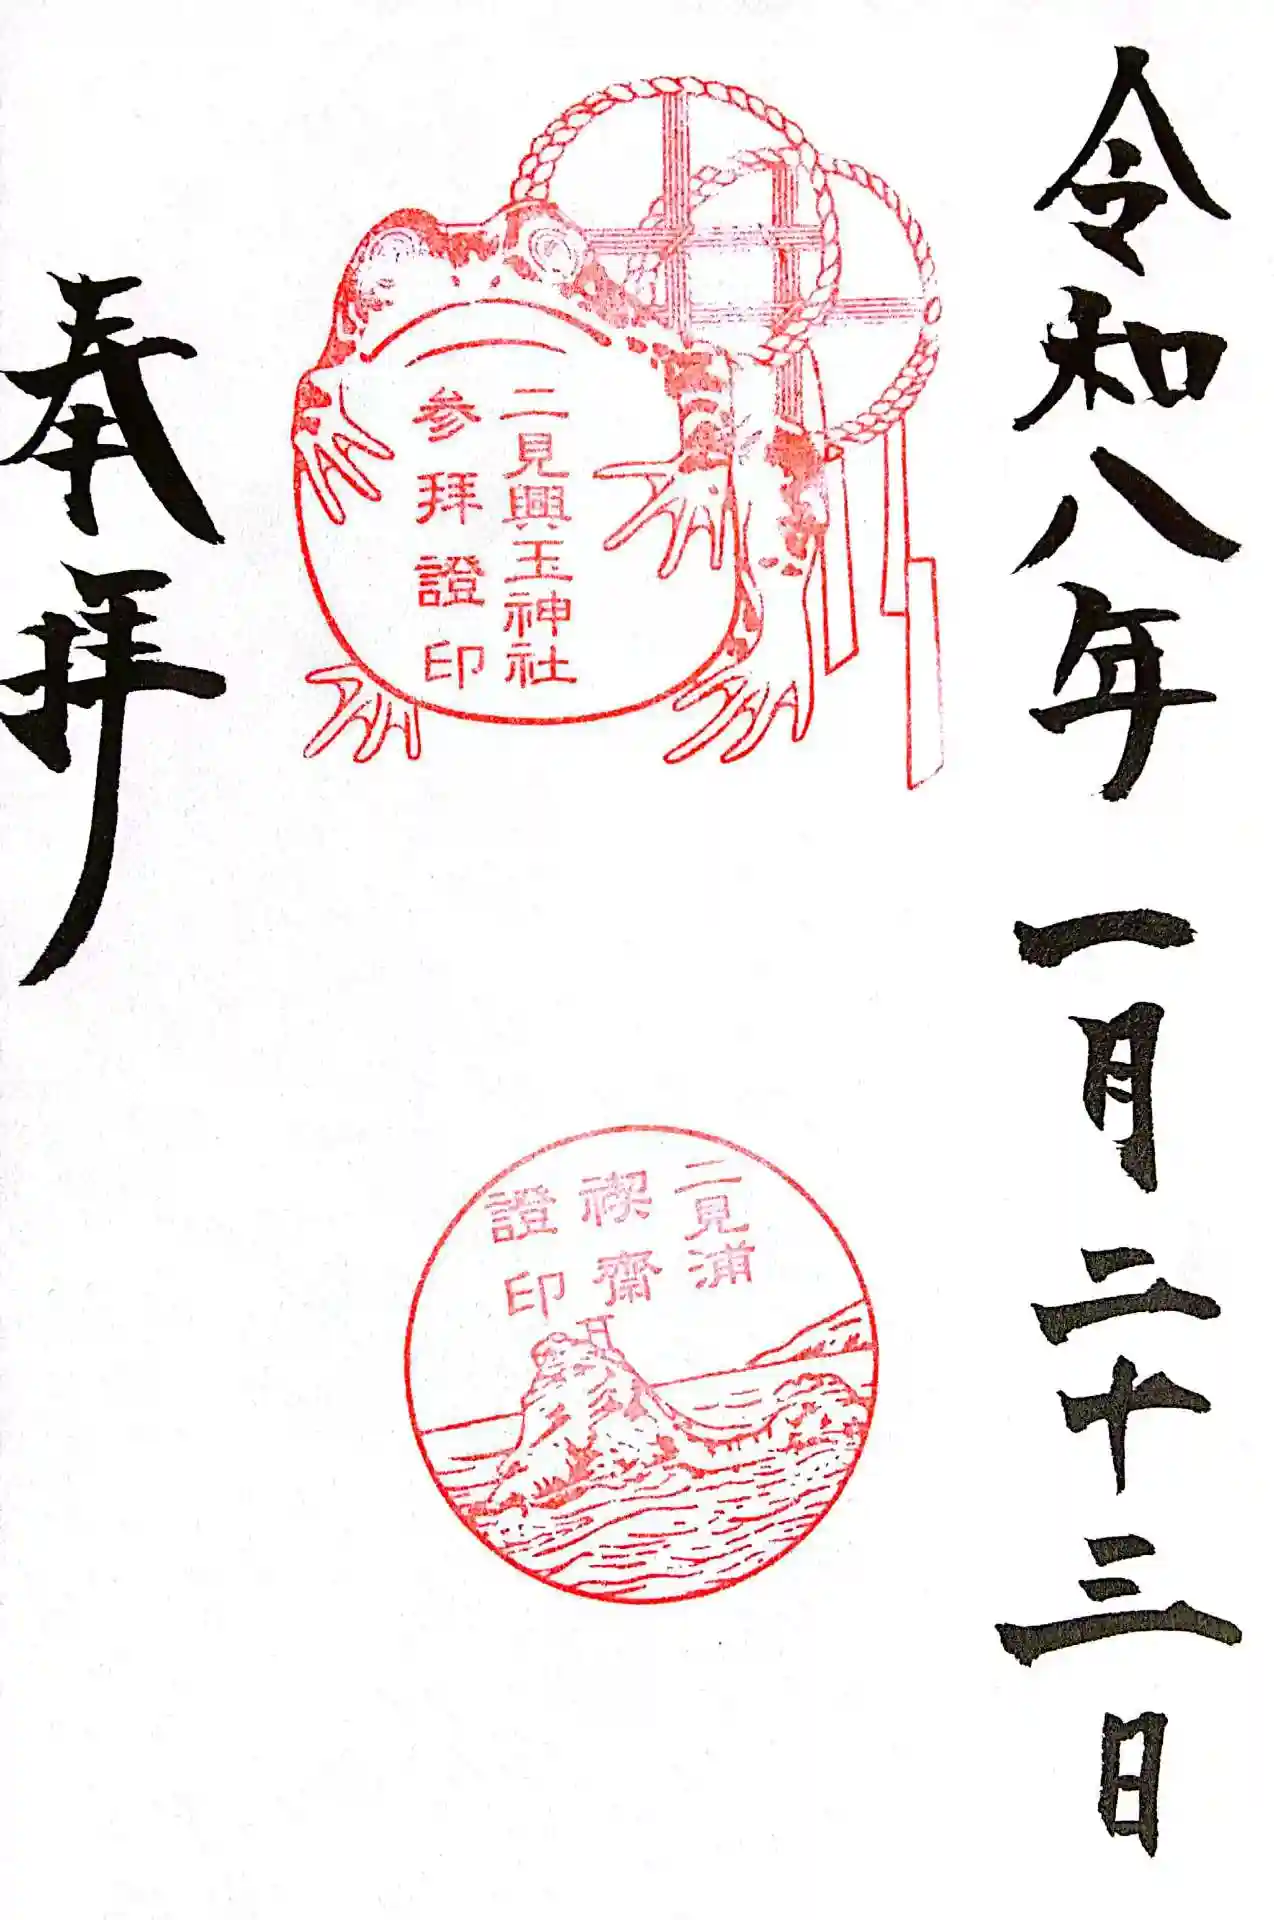 令和八年一月二十三日
二見興玉神社
参拜證印
二見浦
禊齋
證印
奉拝